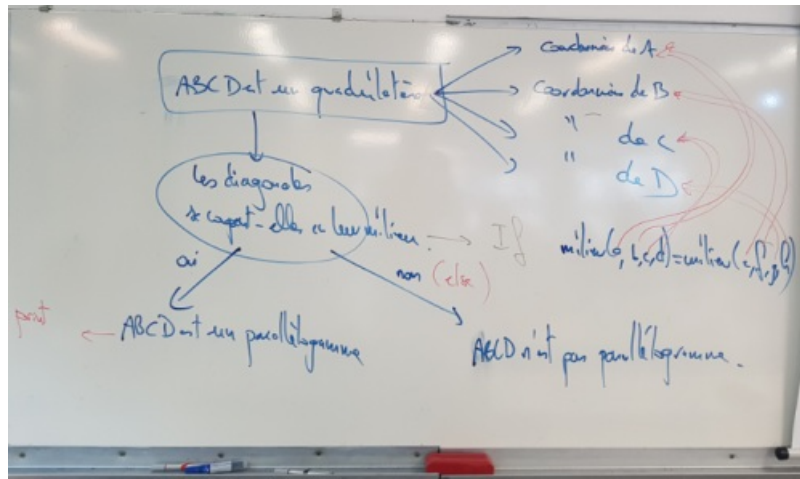 ABCD est un quadrilatère
coordonnées de A
Coordonnées de B
" de C
" de D
les diagonales
se coupent-elles en leur milieu
If
milieu(a,b,c,d)=milieu(e,f,g,h)
oui
non (else)
print
ABCD est un parallélogramme
ABCD n'est pas parallélogramme.